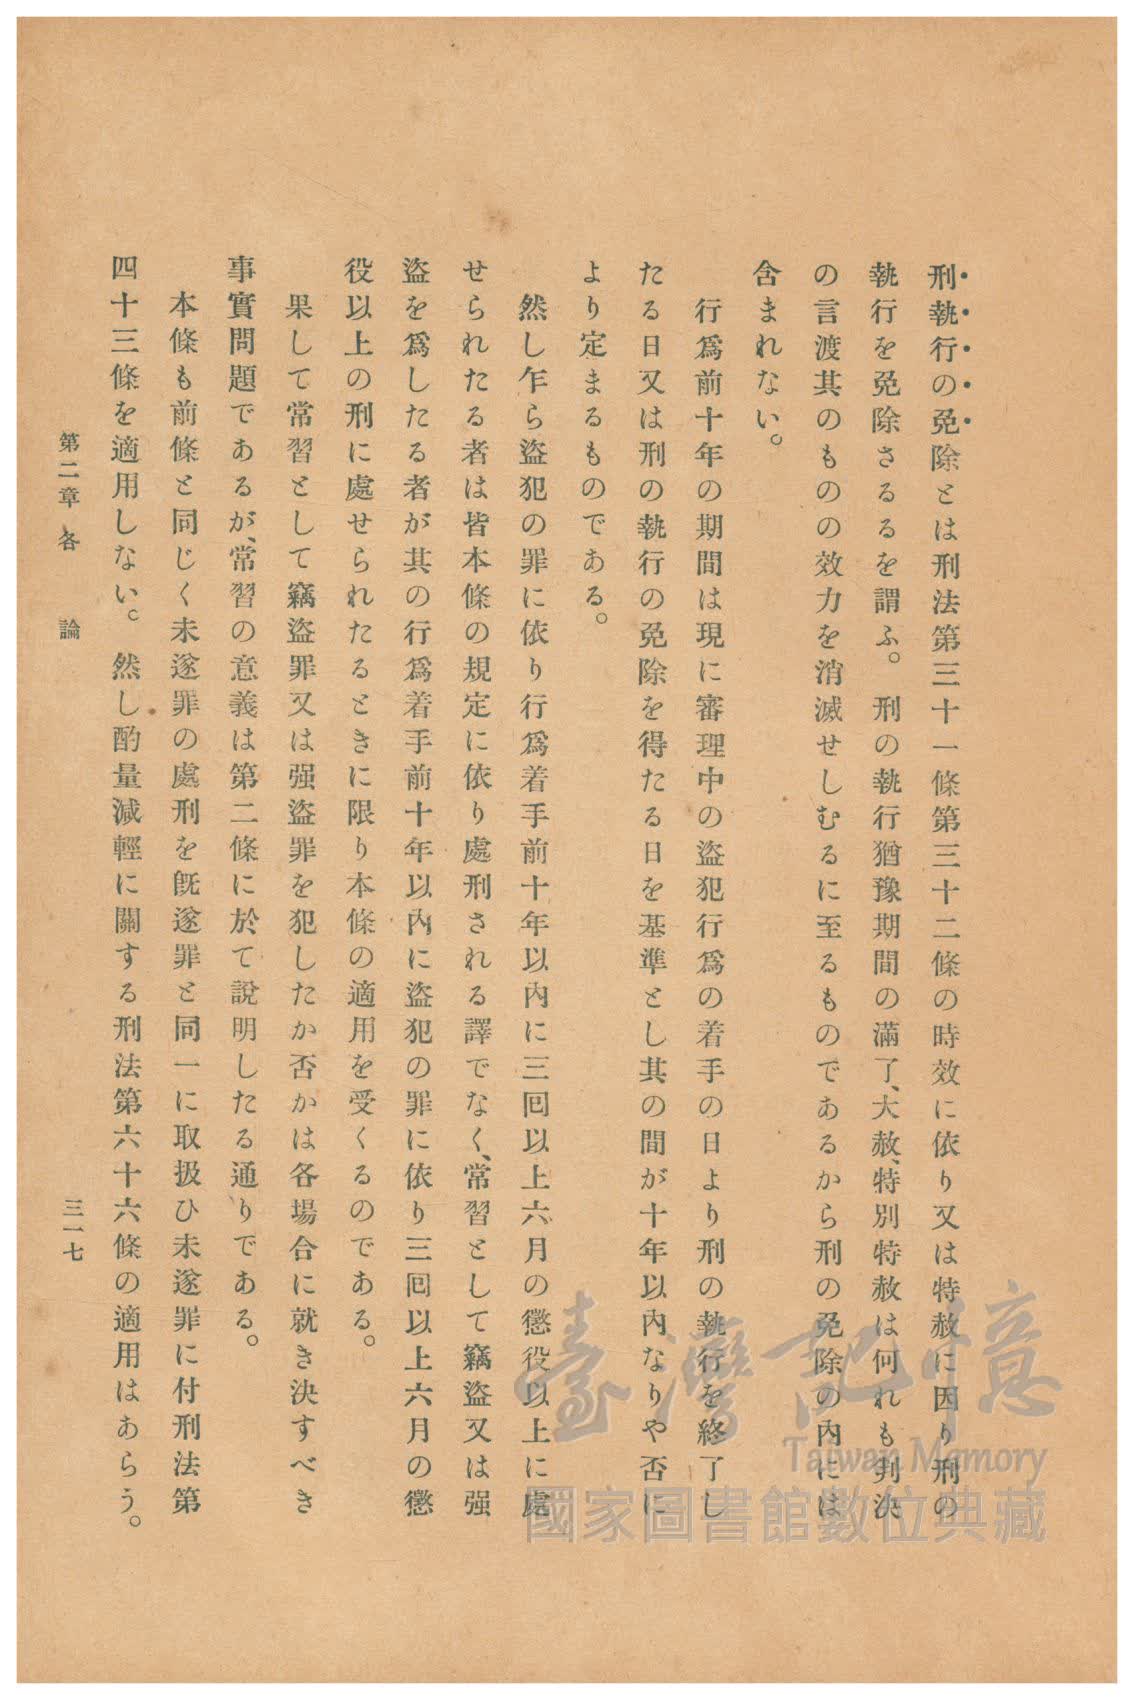 刑執行の免除とは刑法第三十一條第三十二條の時效に依り又は特赦に因り刑の
執行を免除さるるを謂ふ。刑の執行猶豫期間の滿了、大赦、特別特赦は何れも判決
の言渡其のものの效力を消滅せしむるに至るものであるから刑の免除の內には
含まれない。
行爲前十年の期間は現に審理中の盜犯行爲の着手の日より刑の執行を終了し
たる日又は刑の執行の免除を得たる日を基準とし其の間が十年以內なりや否に
より定まるものである。
然し乍ら盜犯の罪に依り行爲着手前十年以內に三囘以上六月の懲役以上に處
せられたる者は皆本條の規定に依り處刑される譯でなく、常習として竊盜又は强
盜を爲したる者が其の行爲着手前十年以內に盜犯の罪に依り三囘以上六月の懲
役以上の刑に處せられたるときに限り本條の適用を受くるのである。
果して常習として竊盜罪又は强盜罪を犯したか否かは各場合に就き決すべき
事實問題であるが、常習の意義は第二條に於て說明したる通りである。
本條も前條と同じく未遂罪の處刑を旣遂罪と同一に取扱ひ未遂罪に付刑法第
四十三條を適用しない。然し酌量減輕に關する刑法第六十六條の適用はあらう。
第二章 各論
三一七
臺灣記憶
Taiwan Memory
國家圖書館數位典藏